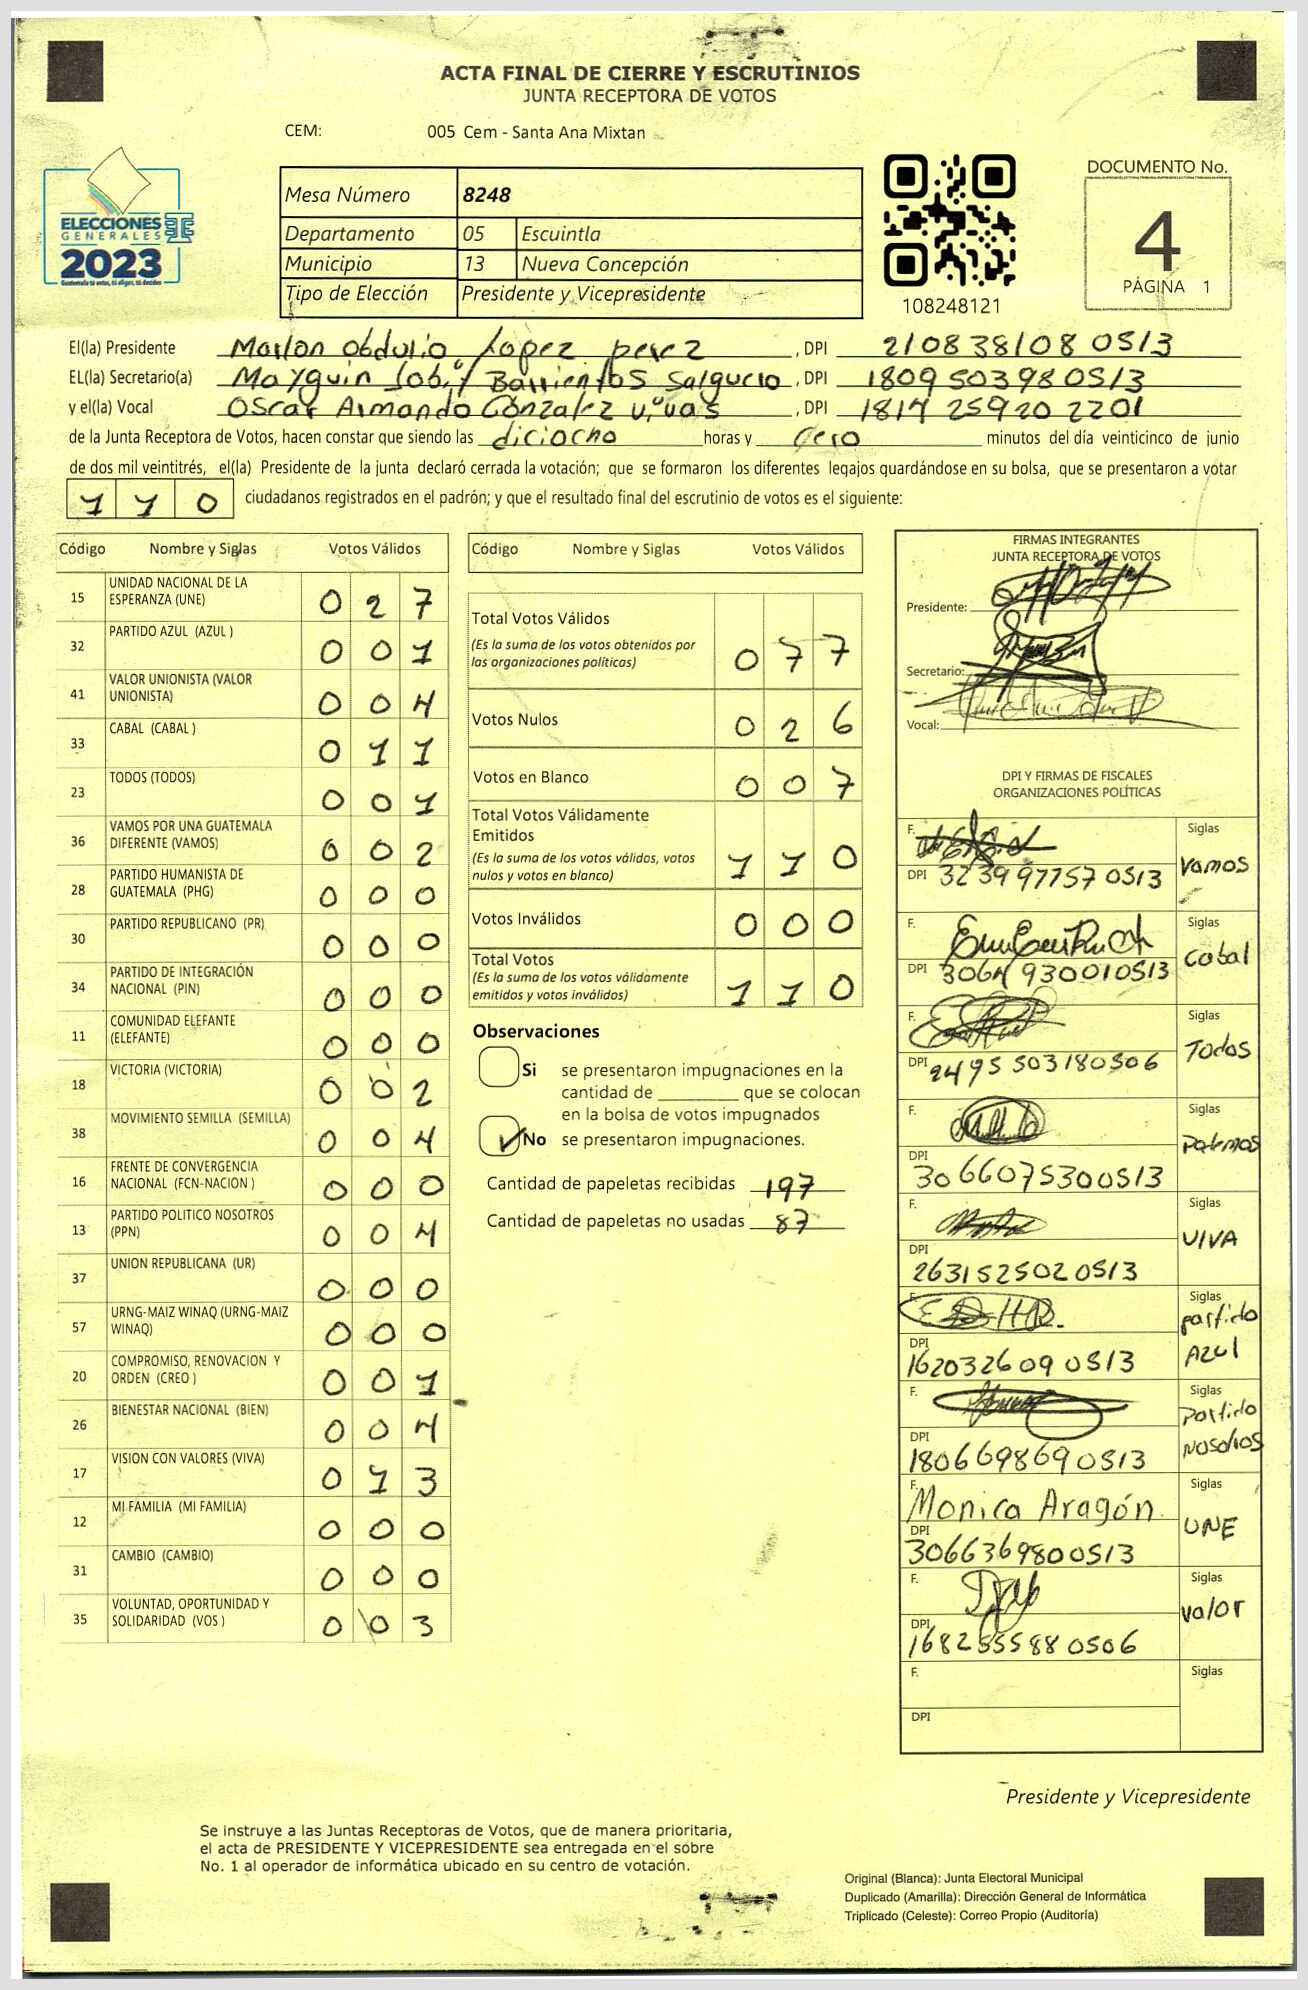 ACTA FINAL DE CIERRE Y ESCRUTINIOS
JUNTA RECEPTORA DE VOTOS
CEM: 005 Cem - Santa Ana Mixtan
ELECCIONES
GENERALES
2023
Mesa Número 8248
Departamento 05 Escuintla
Municipio 13 Nueva Concepción
Tipo de Elección Presidente y Vicepresidente
108248121
DOCUMENTO No.
4
PÁGINA 1
El(la) Presidente Marlon Obdulio Lopez perez, DPI 210838108 0513
EL(la) Secretario(a) Mayquin Barrientos Salguero, DPI 180950398 0513
y el(la) Vocal Oscar Armando Gonzalez, DPI 1817 25920 2201
de la Junta Receptora de Votos, hacen constar que siendo las diciocho horas y cero minutos del día veinticinco de junio
de dos mil veintitrés, el(la) Presidente de la junta declaró cerrada la votación; que se formaron los diferentes legajos guardándose en su bolsa, que se presentaron a votar
1 1 0 ciudadanos registrados en el padrón; y que el resultado final del escrutinio de votos es el siguiente:
Código Nombre y Siglas Votos Válidos
15 UNIDAD NACIONAL DE LA
ESPERANZA (UNE) 0 2 7
32 PARTIDO AZUL (AZUL ) 0 0 1
41 VALOR UNIONISTA (VALOR
UNIONISTA) 0 0 4
33 CABAL (CABAL ) 0 1 1
23 TODOS (TODOS) 0 0 1
36 VAMOS POR UNA GUATEMALA
DIFERENTE (VAMOS) 0 0 2
28 PARTIDO HUMANISTA DE
GUATEMALA (PHG) 0 0 0
30 PARTIDO REPUBLICANO (PR) 0 0 0
34 PARTIDO DE INTEGRACIÓN
NACIONAL (PIN) 0 0 0
11 COMUNIDAD ELEFANTE
(ELEFANTE) 0 0 0
18 VICTORIA (VICTORIA) 0 0 2
38 MOVIMIENTO SEMILLA (SEMILLA) 0 0 4
16 FRENTE DE CONVERGENCIA
NACIONAL (FCN-NACION ) 0 0 0
13 PARTIDO POLITICO NOSOTROS
(PPN) 0 0 4
37 UNION REPUBLICANA (UR) 0 0 0
57 URNG-MAIZ WINAQ (URNG-MAIZ
WINAQ) 0 0 0
20 COMPROMISO, RENOVACION Y
ORDEN (CREO ) 0 0 1
26 BIENESTAR NACIONAL (BIEN) 0 0 4
17 VISION CON VALORES (VIVA) 0 1 3
12 MI FAMILIA (MI FAMILIA) 0 0 0
31 CAMBIO (CAMBIO) 0 0 0
35 VOLUNTAD, OPORTUNIDAD Y
SOLIDARIDAD (VOS ) 0 0 3
Código Nombre y Siglas Votos Válidos
Total Votos Válidos
(Es la suma de los votos obtenidos por
las organizaciones políticas) 0 7 7
Votos Nulos 0 2 6
Votos en Blanco 0 0 7
Total Votos Válidamente
Emitidos
(Es la suma de los votos válidos, votos
nulos y votos en blanco) 1 1 0
Votos Inválidos 0 0 0
Total Votos
(Es la suma de los votos válidamente
emitidos y votos inválidos) 1 1 0
Observaciones
Si se presentaron impugnaciones en la
cantidad de ________ que se colocan
en la bolsa de votos impugnados
No se presentaron impugnaciones.
Cantidad de papeletas recibidas 197
Cantidad de papeletas no usadas 87
FIRMAS INTEGRANTES
JUNTA RECEPTORA DE VOTOS
Presidente:
Secretario:
Vocal:
DPI Y FIRMAS DE FISCALES
ORGANIZACIONES POLÍTICAS
F. Siglas
Vamos
DPI 3239977570513
F. Siglas
Cabal
DPI 3064930010513
F. Siglas
Todos
DPI 2495503180506
F. Siglas
DPI 3066075300513
F. Siglas
VIVA
DPI 2631525020513
F. Siglas
partido
Azul
DPI 1620326090513
F. Siglas
Partido
Nosotros
DPI 1806698690513
F. Monica Aragón Siglas
UNE
DPI 3066369800513
F. Siglas
valor
DPI 1682555880506
F. Siglas
DPI
Presidente y Vicepresidente
Se instruye a las Juntas Receptoras de Votos, que de manera prioritaria,
el acta de PRESIDENTE Y VICEPRESIDENTE sea entregada en el sobre
No. 1 al operador de informática ubicado en su centro de votación.
Original (Blanca): Junta Electoral Municipal
Duplicado (Amarilla): Dirección General de Informática
Triplicado (Celeste): Correo Propio (Auditoría)